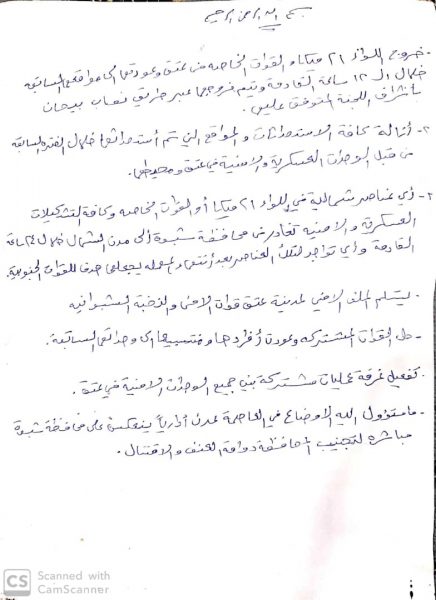 بسم الله الرحمن الرحيم
- خروج اللواء ٢١ ميكا و القوات الخاصه من عتق وعودتها الى مواقعها السابقه
خلال الـ ١٢ ساعة القادمة ويتم خروجها عبر طريق نصاب بيحان
بأشراف اللجنة المتوافق عليها.
٢- أزالة كافة الاستحداثات و المواقع التي تم أستحداثها خلال الفتره السابقه
من قبل الوحدات العسكرية والامنية في عتق ومحيطها.
٣- أي عناصر شمالية في اللواء ٢١ ميكا أو القوات الخاصه وكافة التشكيلات
العسكرية والامنية تغادر من محافظة شبوة الى مدن الشمال خلال ساعة
القادمة وأي تواجد لتلك العناصر بعد أنتهاء المهله يجعلها هدفا للقوات الجنوبية.
- يستلم الملف الامني لمدينة عتق قوات الامن والنخبة الشبوانيه
- حل القوات المشتركه وعودة أفرادها ومنتسبيها الى وحداتهم السابقة.
- تفعيل غرفة عمليات مشتركة بين جميع الوحدات الامنية في عتق.
- ماستؤول اليه الاوضاع في العاصمة عدن أداريا ينعكس على محافظة شبوة
مباشره لتجنيب المحافظة دوامة العنف والاقتتال.
CS Scanned with
CamScanner